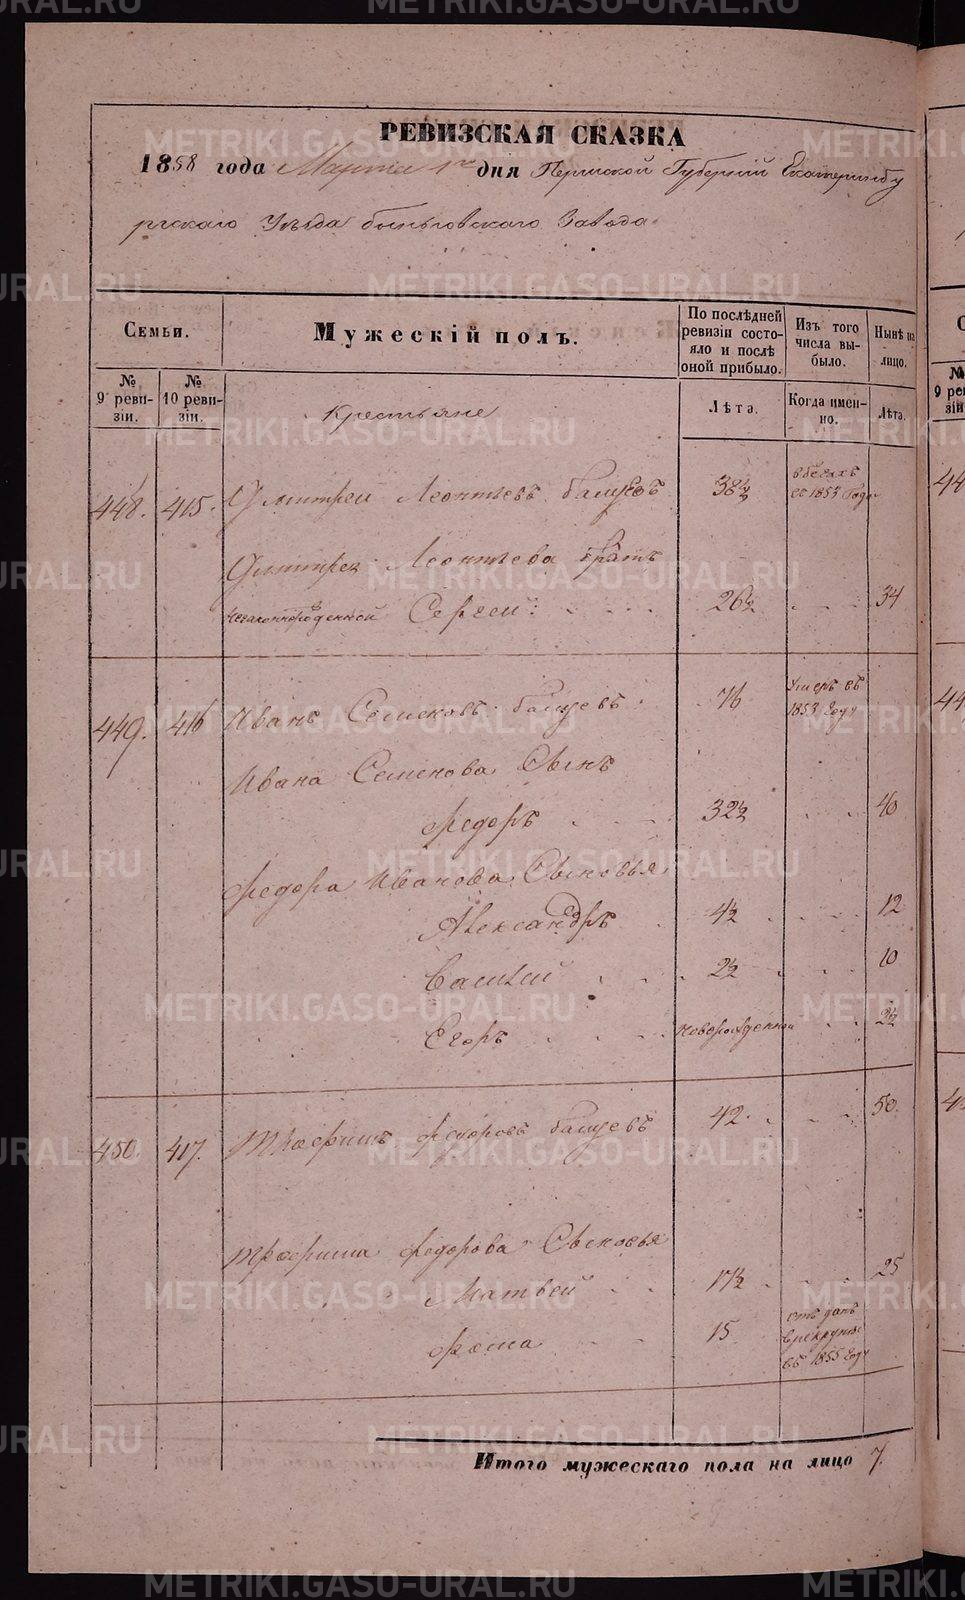 РЕВИЗСКАЯ СКАЗКА
1858 года Марта 1го дня Пермской Губерніи Екатеринбу
ргскаго Уѣзда Быньговскаго Завода
Семьи.
Мужескій полъ.
По послѣдней ревизіи состояло и послѣ оной прибыло.
Изъ того числа выбыло.
Нынѣ на лицо.
№ 9 ревизіи.
№ 10 ревизіи.
Лѣта.
Когда именно.
Лѣта.
Крестьяне
448. 415. Дмитреи Леонтьевъ 38½ въ бегахъ съ 1853 Года
Дмитрея Леонтьева братъ
незаконнорожденной Сергеи 26½ 34
449. 416 Иванъ Семеновъ 76 Умеръ въ 1853 Году
Ивана Семенова Сынъ
Федоръ 32½ 40
Федора Иванова Сыновья
Александръ 4½ 12
Василей 2½ 10
Егоръ Новорожденной 2½
450. 417. Трефилъ Федоровъ 42 50
Трефила Федорова Сыновья
Матвей 17½ 25
Фома 15 отъ данъ в рекруты въ 1855 Году
Итого мужескаго пола на лицо 7.
METRIKI.GASO-URAL.RU